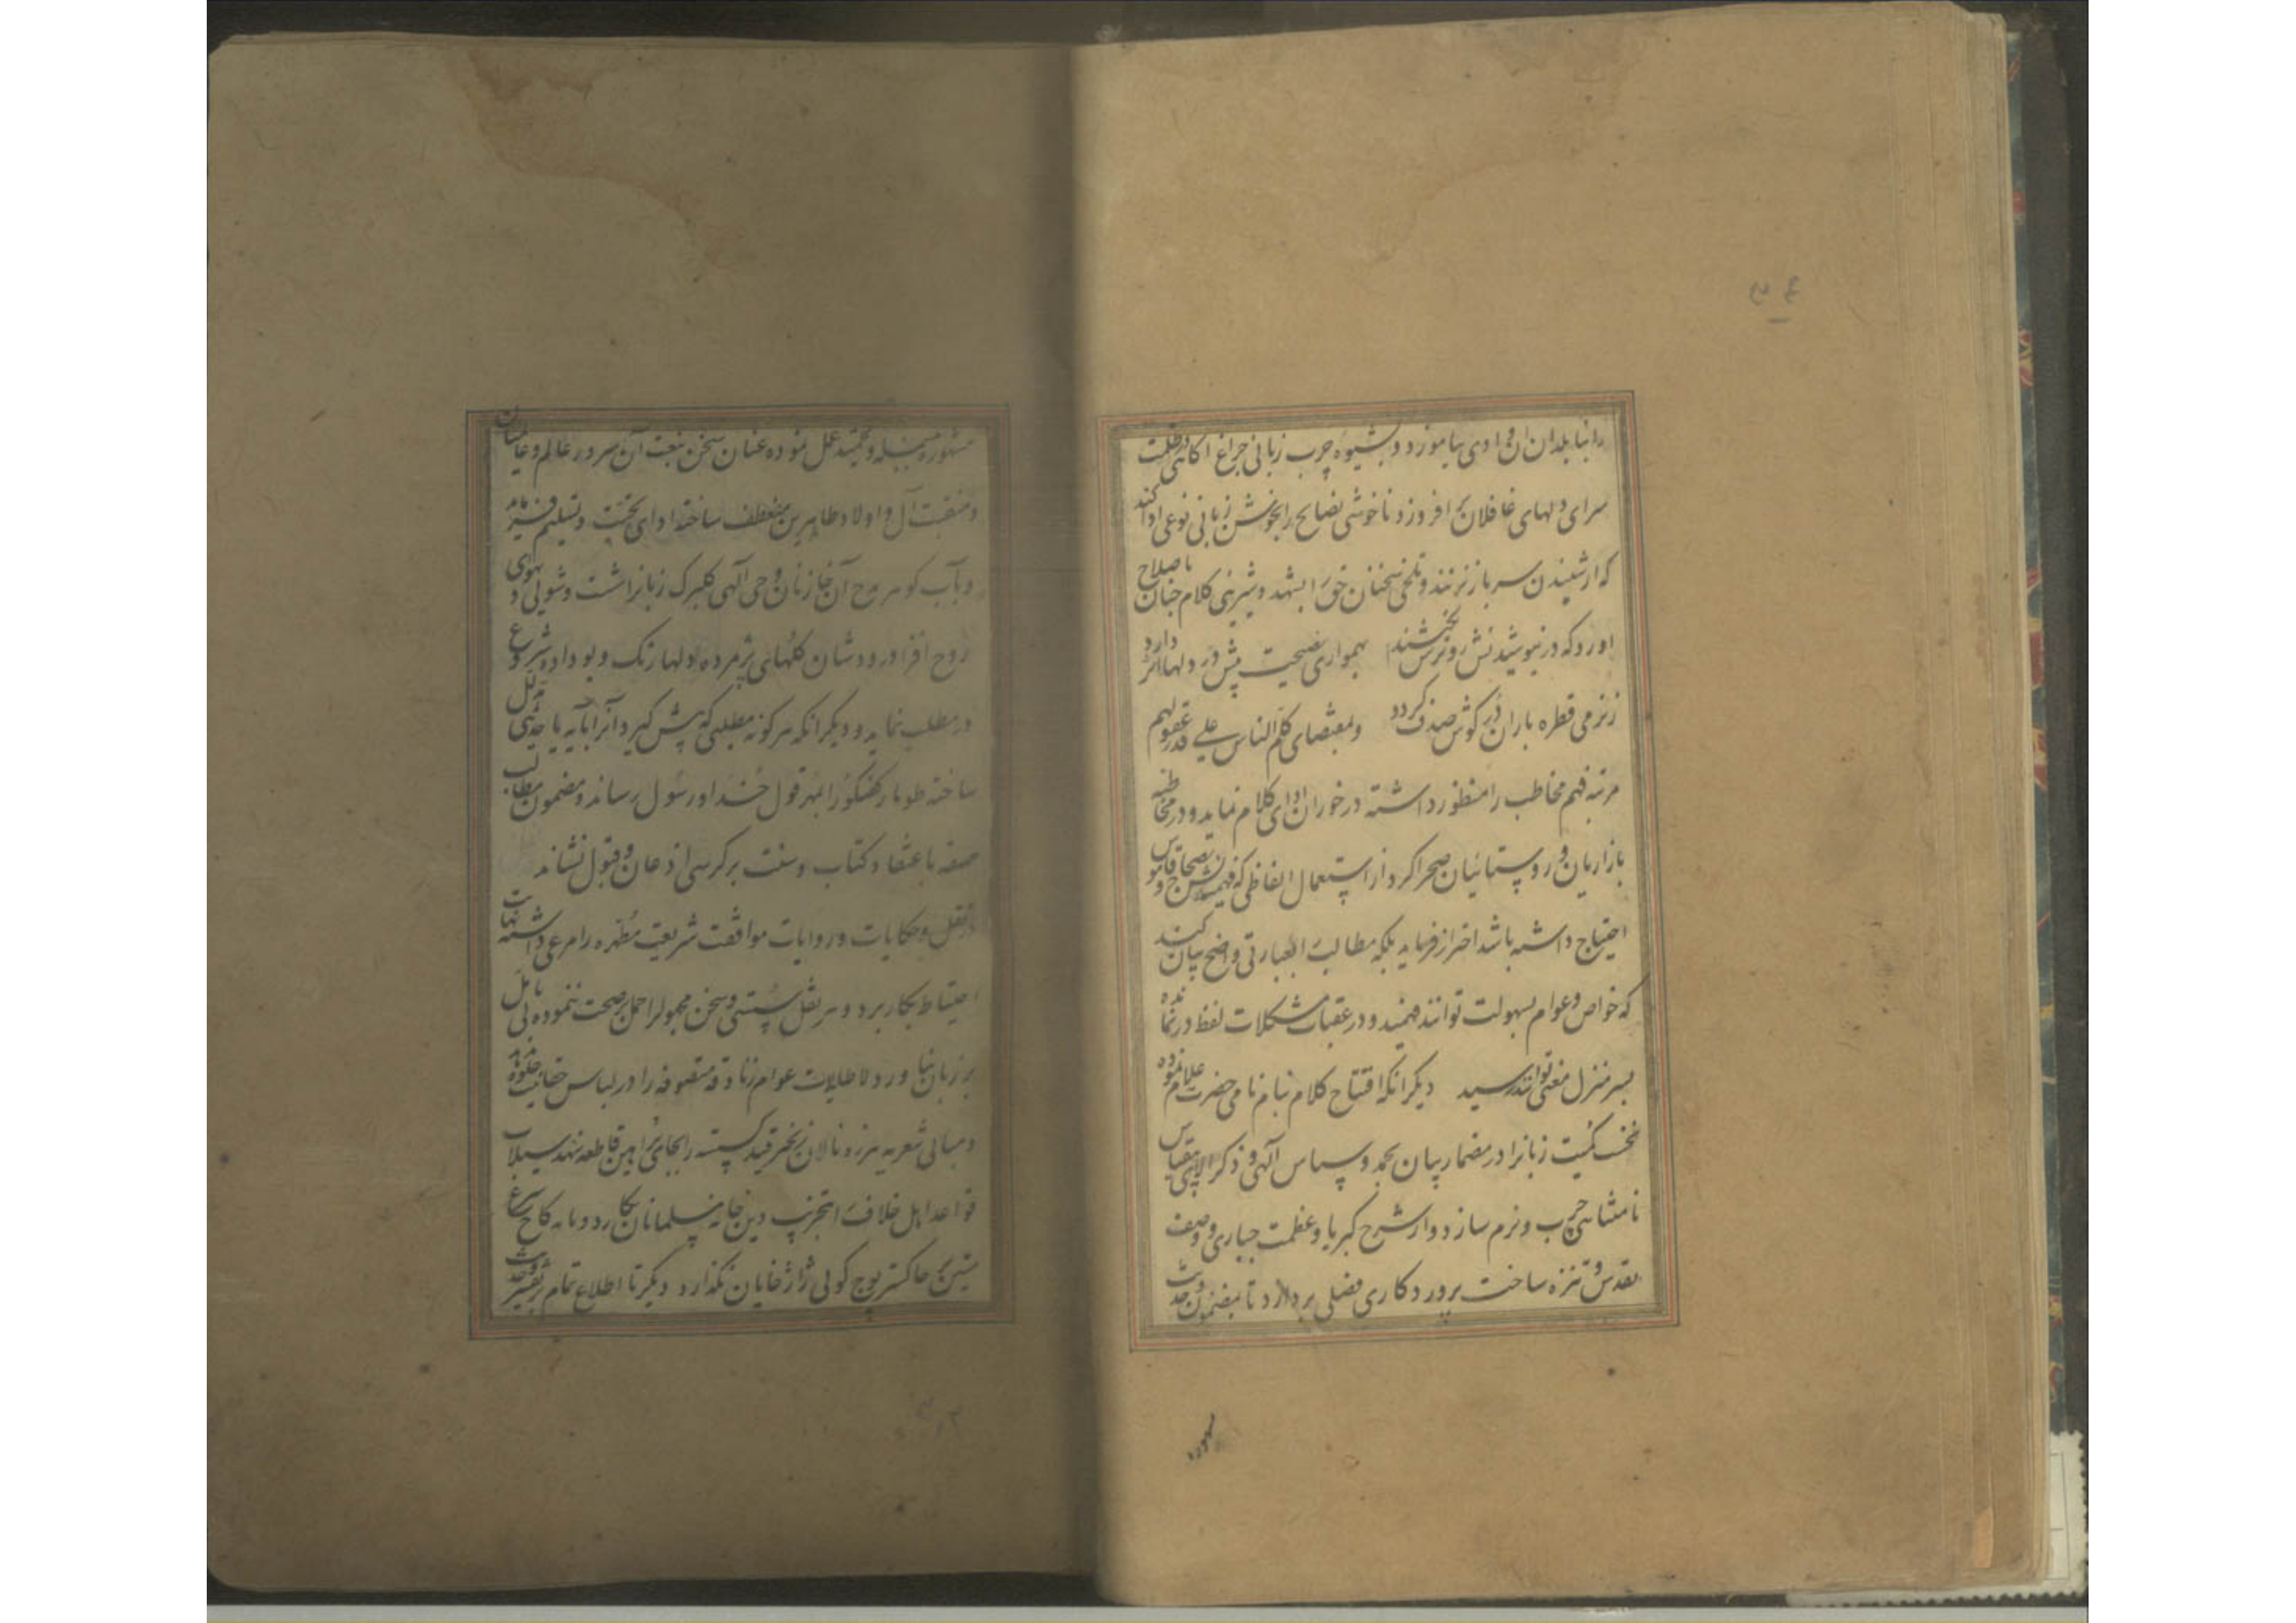 را بنابلدان آن وادی بیاموزد و بشیوه چرب زبانی چراغ آگاهی در ظلمت
سرای دلهای غافلان بر افروزد ناخوشی نصایح را بخوش زبانی نوعی ادا کند
که از شنیدن سر باز نزنند و تلخی سخنان حق را بشهد و شیرینی کلام چنان باصلاح
آورد که در نیوشیدنش رو ترش نبخشند همواری نصیحت پیش در دلها اثر دارد
ز نرمی قطره باران در گوش صدف گردد و بمقتضای کلم الناس علی قدر عقولهم
مرتبه فهم مخاطب را منظور داشته در خور آن ادای کلام نماید و در مخاطبه
بازاریان و روستائیان صحرا گرد از استعمال الفاظی که فهمیدنش بصحاح و قاموس
احتیاج داشته باشد احتراز فرماید بلکه مطالب را بعبارتی واضح بیان کند
که خواص و عوام بسهولت توانند فهمید و در عقبات مشکلات لفظ در نمانده
بسر منزل معنی توانند رسید دیگر آنکه افتتاح کلام بنام نامی حضرت علام نموده
نخست کمیت زبانرا در مضمار بیان بحمد و سپاس الهی و ذکر آلای بیقیاس
نامتناهی چرب و نرم سازد و از شرح کبریا و عظمت جباری و وصف
تقدس و تنزه ساحت پروردگاری فصلی بردازد تا بمضمون حدیث
مشهوره
۳۴
مشهوره بسمله و تحمید عمل نموده عنان سخن بنعت آن سرور عالم و عالمیان
و منقبت آل و اولاد طاهرین منعطف ساخته ادای تحیت و تسلیم فرماید
و بآب گوهر مدح آن خازنان وحی الهی گلبرگ زبانرا شست و شوئی دهد و ببوی
روح افزا درودشان گلهای پژمرده دلها رنگ و بو داده و شروع
در مطلب نماید و دیگر آنکه هر گونه مطلبی که پیش گیرد آنرا بآیه یا حدیثی مدلل
ساخته طومار گفتگو را بمهر قول خدا و رسول رساند و مضمون مطالب
حقه باعتضاد کتاب و سنت بر کرسی اذعان و قبول نشاند
در نقل و حکایات و روایات موافقت شریعت مطهره را مرعی داشته نهایت
احتیاط بکار برد و هر نقل سستی و سخن مجهول را حمل بر صحت ننموده بی تامل
بر زبان نیاورد و لاطایلات عوام زنادقه متصوفه را در لباس حقانیت جلوه ندهد
و مبانی شعریه هرزه نالان زنجیر قید گسسته را بجای براهین قاطعه ننهد سیلاب
قواعد اهل خلاف را بتخریب دین خانه مسلمانان نگارد و بنای کاخ شرع
متین را بخاکستر پوچ گوئی ژاژخایان نگذارد دیگر تا اطلاع تمام بر تفسیر و حدیث